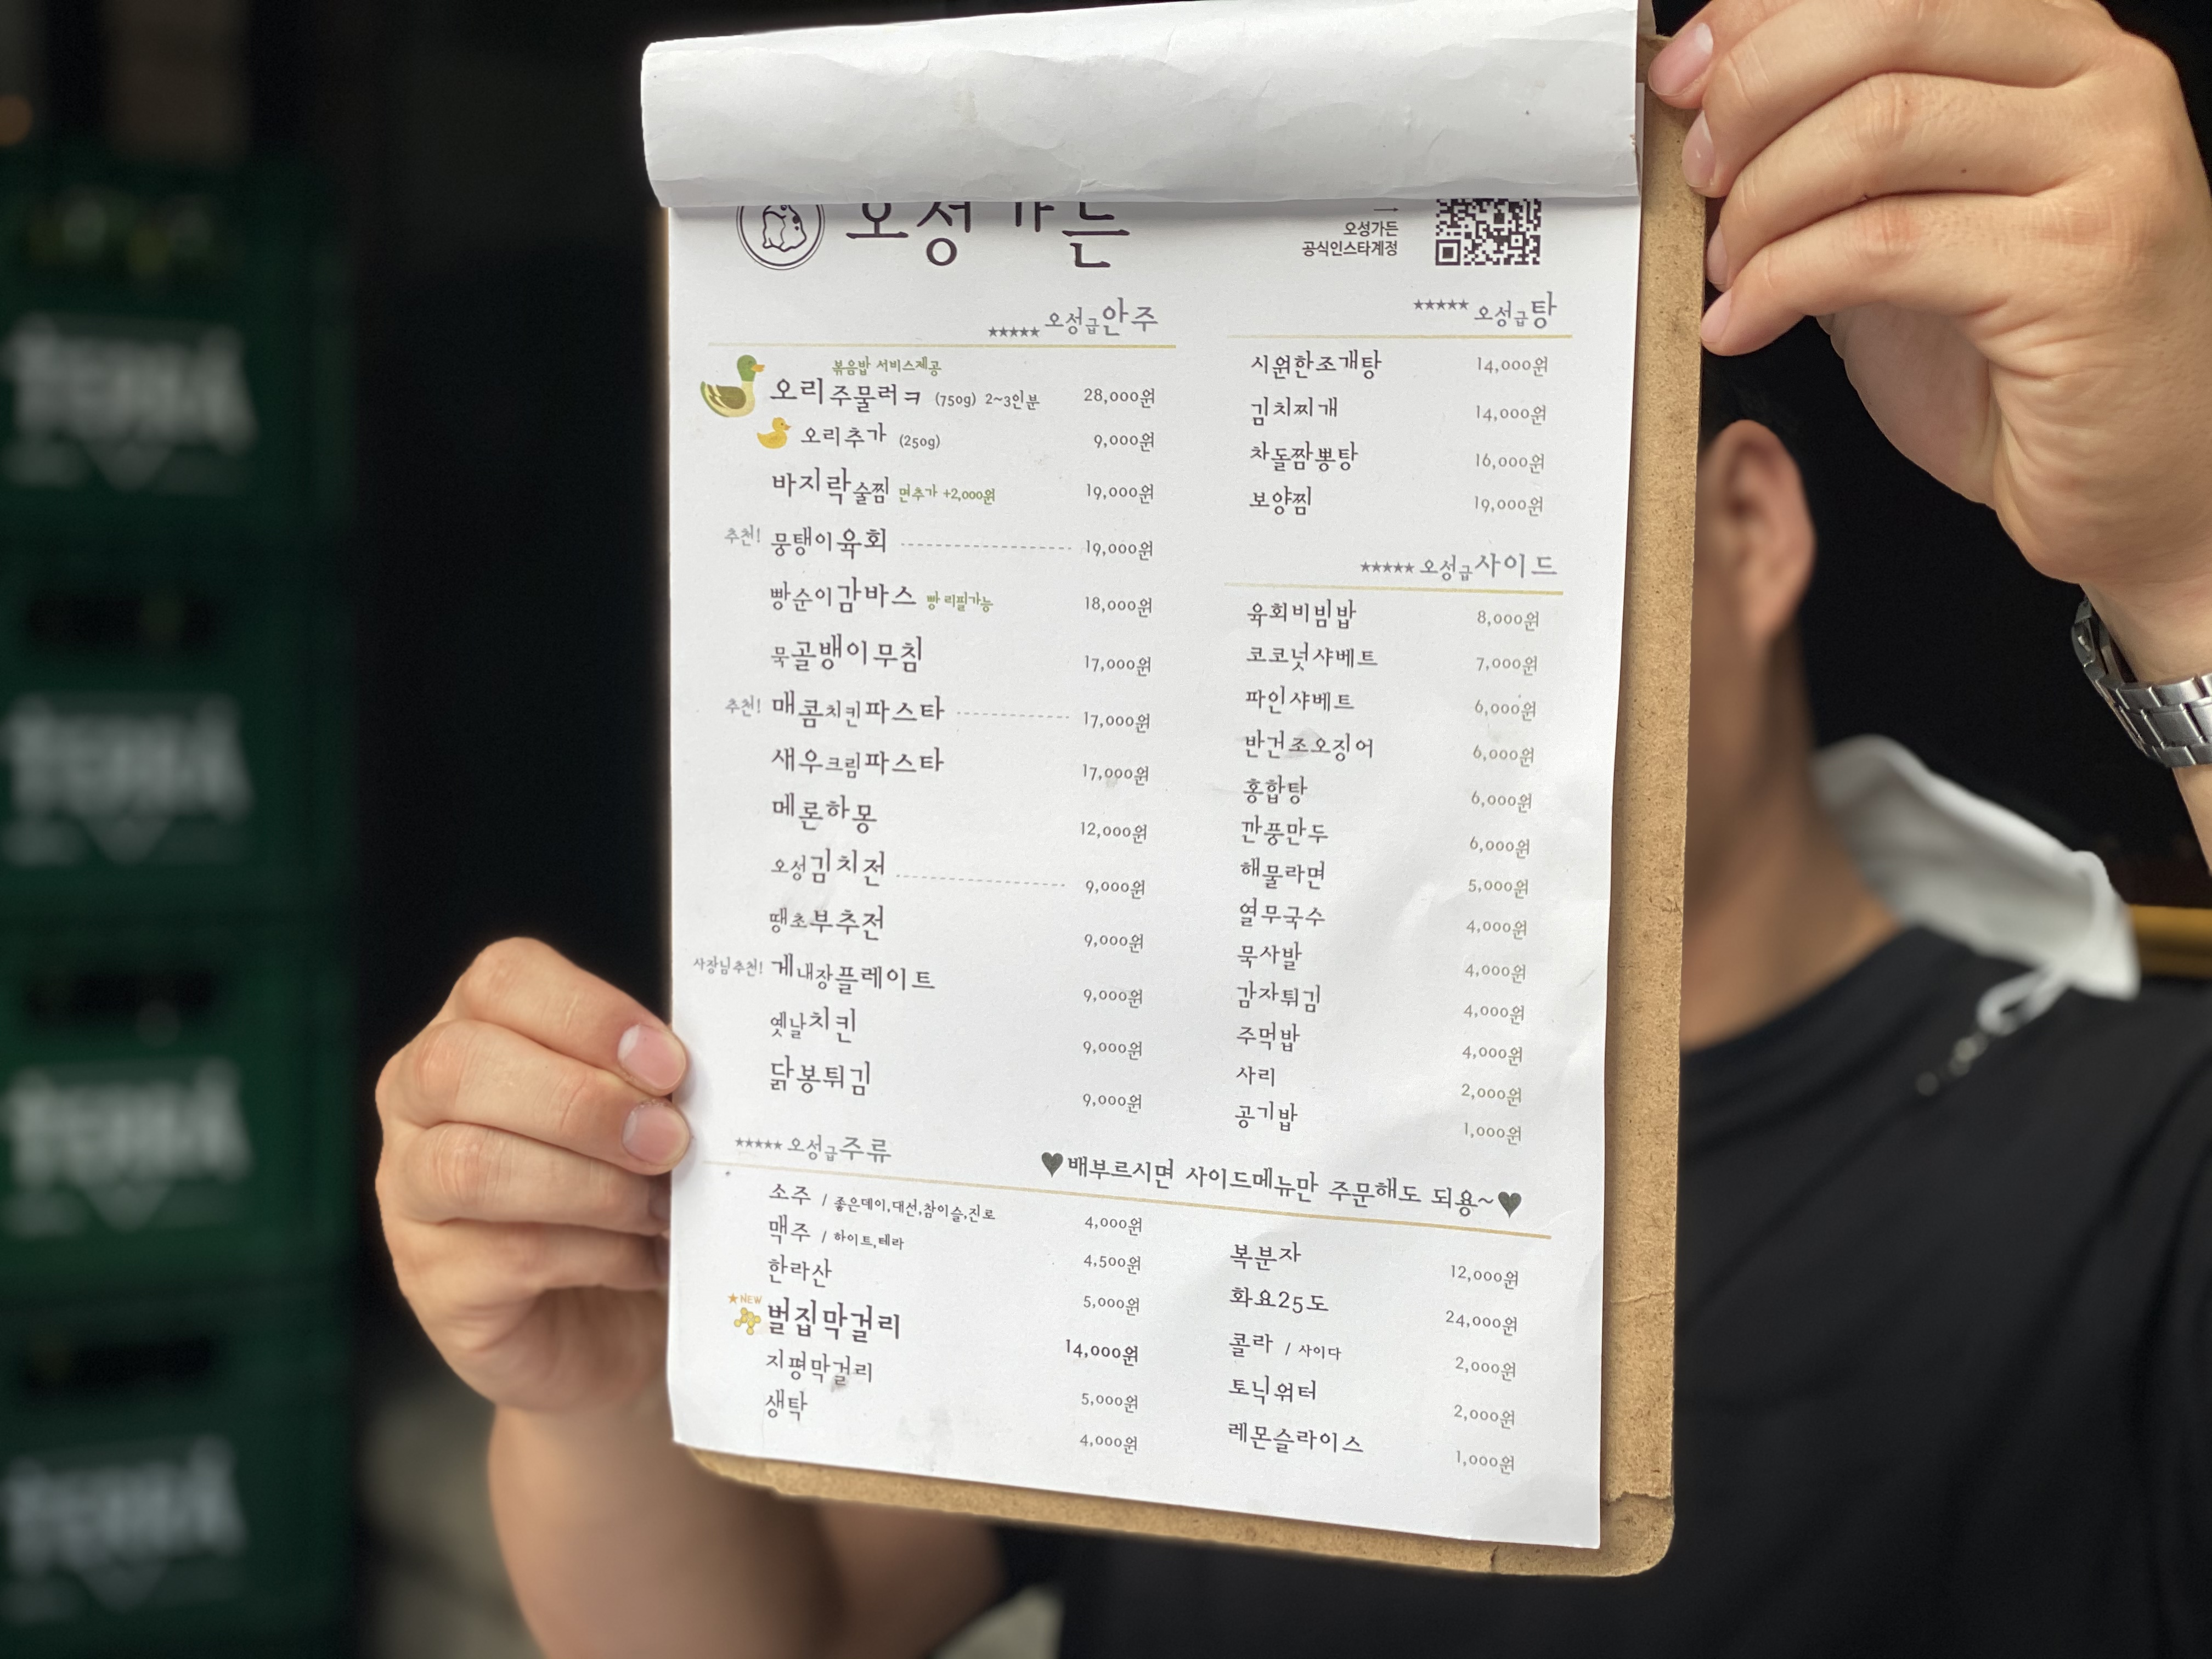 오성가든
오성가든
공식인스타계정
★★★★★ 오성급안주
볶음밥 서비스제공
오리주물러ㅋ (750g) 2~3인분 28,000원
오리추가 (250g) 9,000원
바지락술찜 면추가 +2,000원 19,000원
추천! 뭉탱이육회 19,000원
빵순이감바스 빵 리필가능 18,000원
묵골뱅이무침 17,000원
추천! 매콤치킨파스타 17,000원
새우크림파스타 17,000원
메론하몽 12,000원
오성김치전 9,000원
땡초부추전 9,000원
사장님추천! 게내장플레이트 9,000원
옛날치킨 9,000원
닭봉튀김 9,000원
★★★★★ 오성급탕
시원한조개탕 14,000원
김치찌개 14,000원
차돌짬뽕탕 16,000원
보양찜 19,000원
★★★★★ 오성급사이드
육회비빔밥 8,000원
코코넛샤베트 7,000원
파인샤베트 6,000원
반건조오징어 6,000원
홍합탕 6,000원
깐풍만두 6,000원
해물라면 5,000원
열무국수 4,000원
묵사발 4,000원
감자튀김 4,000원
주먹밥 4,000원
사리 2,000원
공기밥 1,000원
♥배부르시면 사이드메뉴만 주문해도 되용~♥
★★★★★ 오성급주류
소주 / 좋은데이,대선,참이슬,진로 4,000원
맥주 / 하이트,테라 4,500원
한라산 5,000원
★NEW
벌집막걸리 14,000원
지평막걸리 5,000원
생탁 4,000원
복분자 12,000원
화요25도 24,000원
콜라 / 사이다 2,000원
토닉워터 2,000원
레몬슬라이스 1,000원